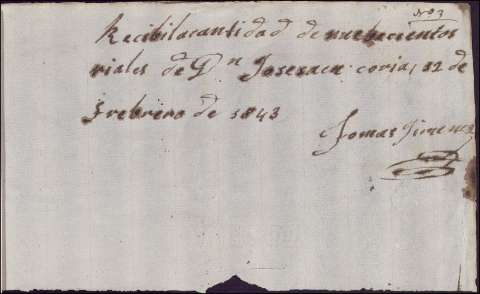 Nº 3
Recibi lacantidad de nuebecientos
riales de Dn Josesaen. coria, 12 de
Frebrero de 1843
Tomas Jimenez